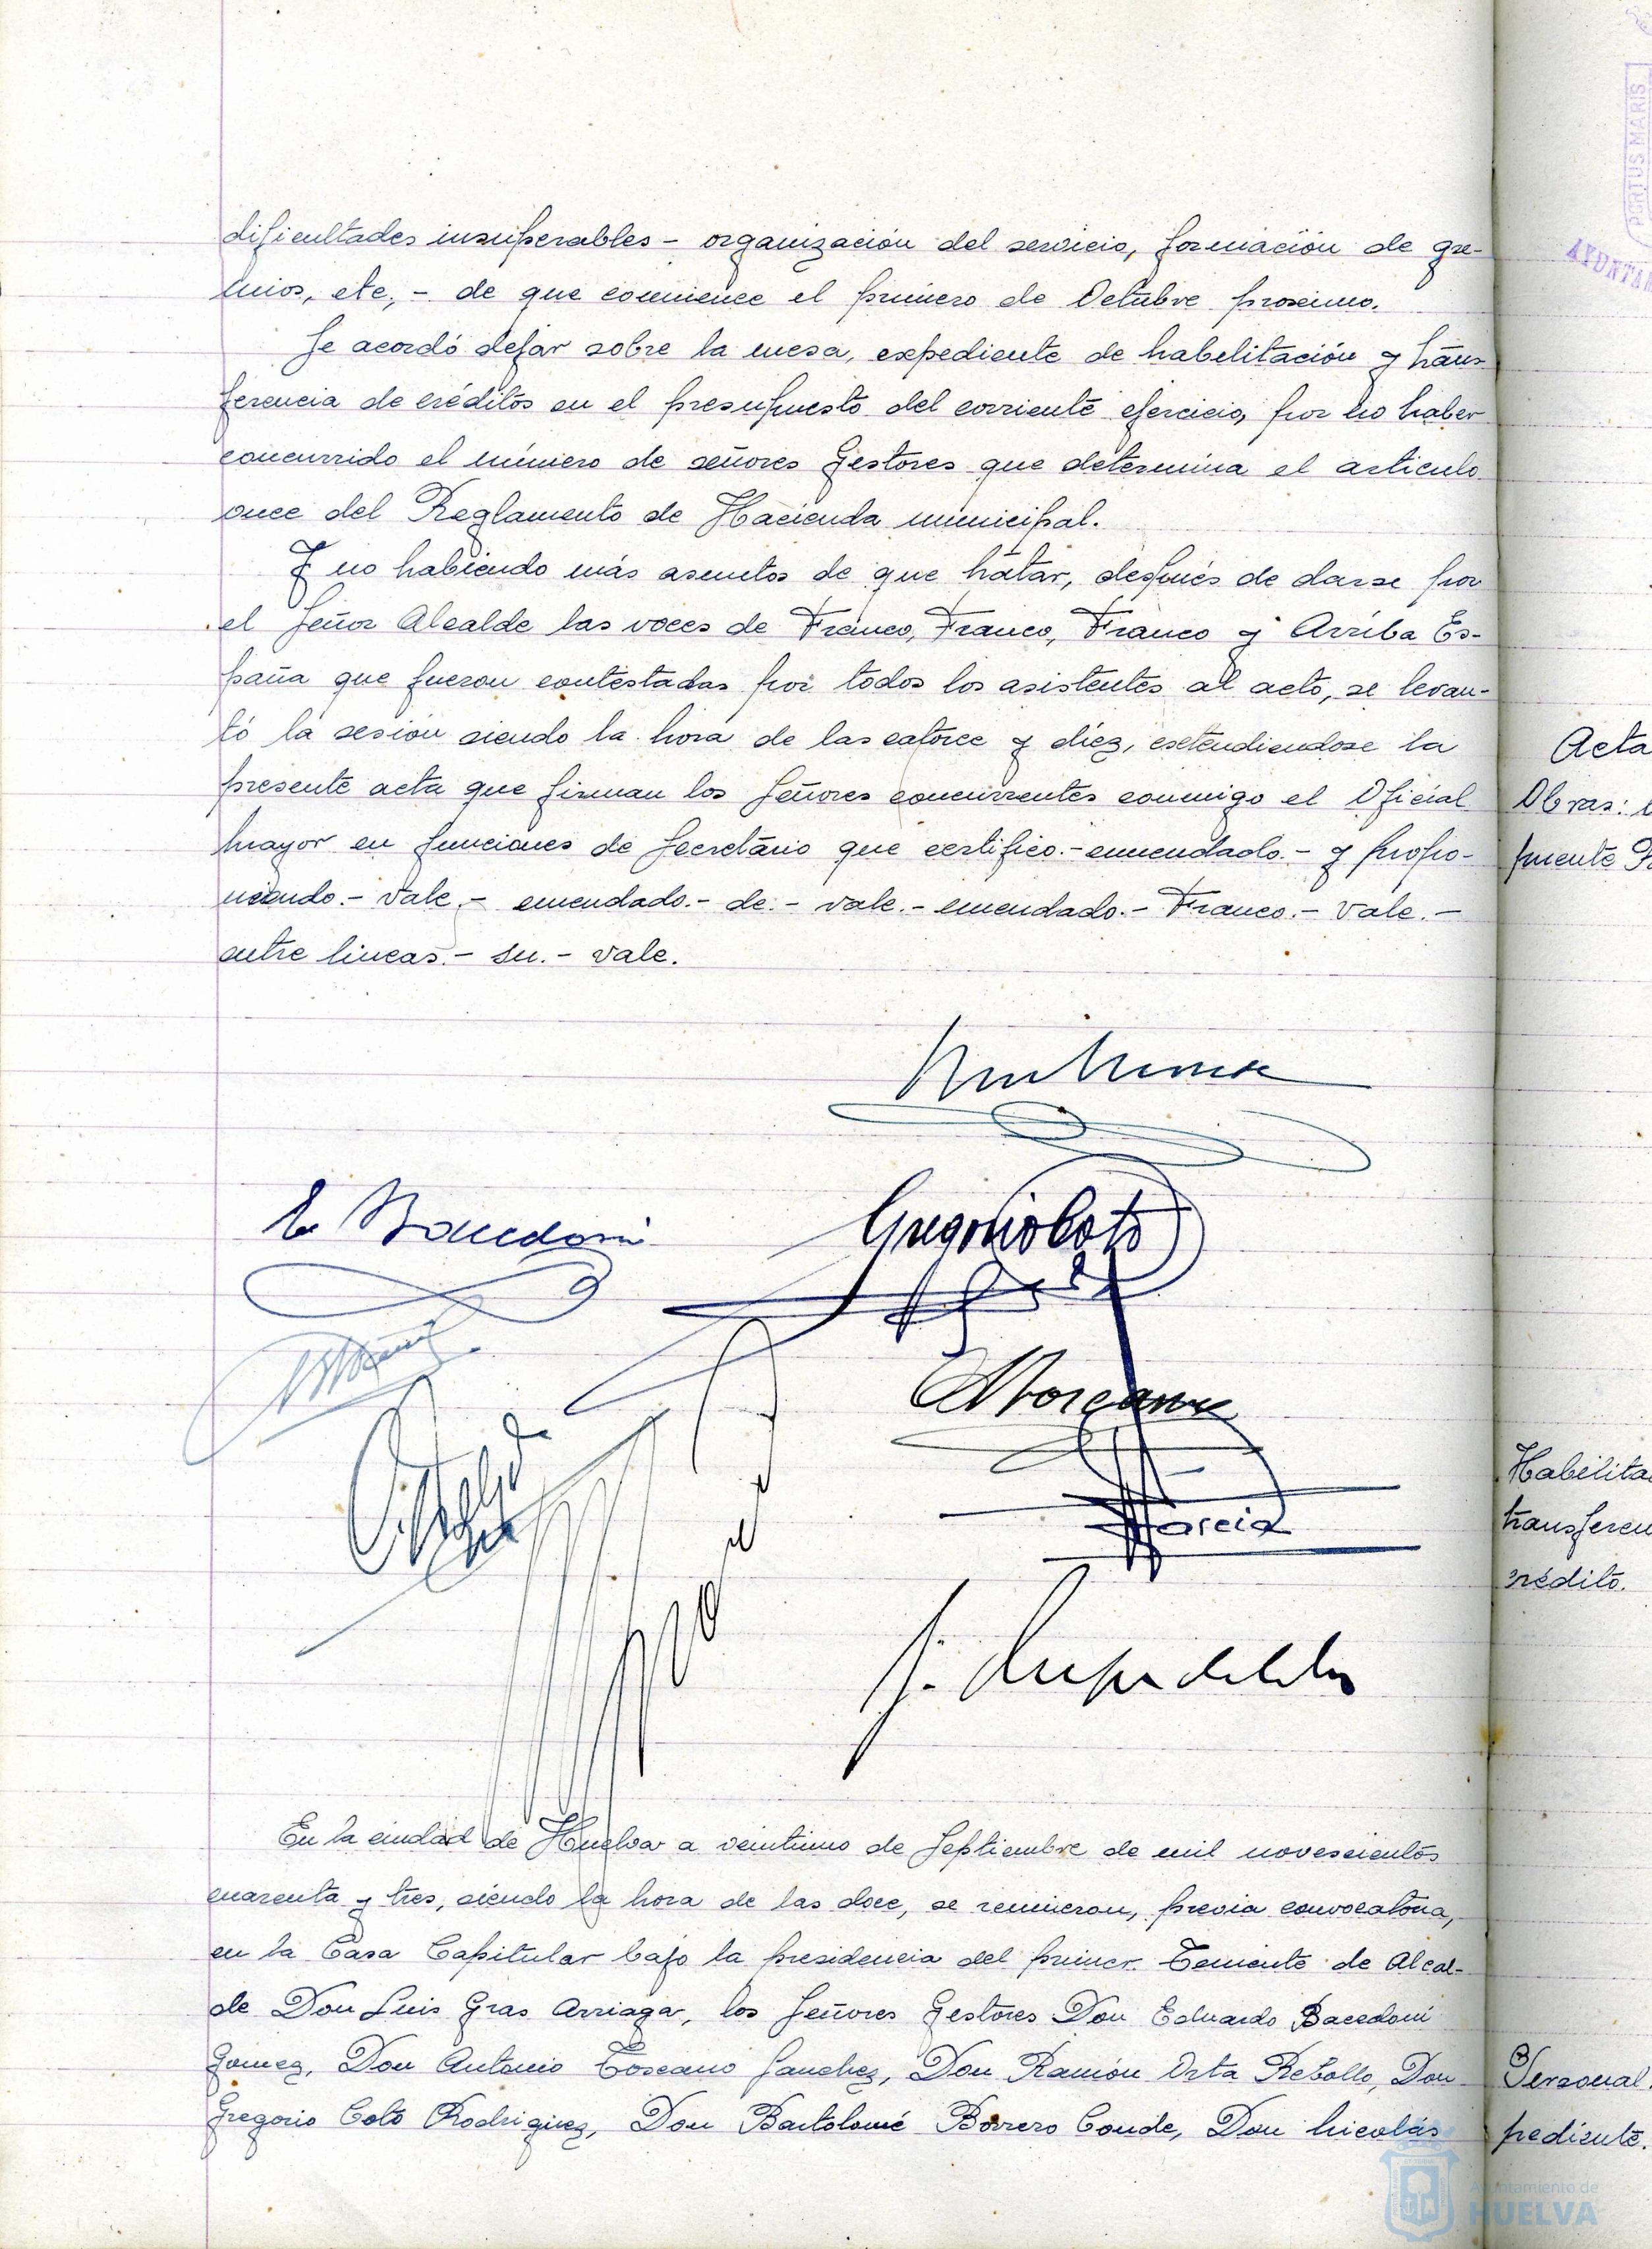 dificultades insuperables - organización del servicio, formación de gre-
mios, etc, - de que comience el primero de Octubre proximo.
Se acordó dejar sobre la mesa, expediente de habilitación y trans-
ferencia de créditos en el presupuesto del corriente ejercicio, por no haber
concurrido el número de señores Gestores que determina el articulo
once del Reglamento de Hacienda municipal.
Y no habiendo más asuntos de que tratar, después de darse por
el Señor Alcalde las voces de Franco, Franco, Franco y Arriba Es-
paña que fueron contestadas por todos los asistentes al acto, se levan-
tó la sesión siendo la hora de las catorce y diez, extendiendose la
presente acta que firman los Señores concurrentes conmigo el Oficial
mayor en funciones de Secretario que certifico.- enmendado.- y propo-
niendo.- vale.- emendado.- de.- vale.- emendado.- Franco.- vale.-
entre lineas.- su.- vale.
E Bacedoni
Gregorio Coto
A Toscano
Garcia
En la ciudad de Huelva a veintiuno de Septiembre de mil novescientos
cuarenta y tres, siendo la hora de las doce, se reunieron, previa convocatoria,
en la Casa Capitular bajo la presidencia del primer Teniente de Alcal-
de Don Luis Gras Arriaga, los Señores Gestores Don Eduardo Bacedoni
Gomez, Don Antonio Toscano Sanchez, Don Ramón Orta Rebollo, Don
Gregorio Coto Rodriguez, Don Bartolomé Borrero Conde, Don Nicolás
PORTUS MARIS
AYUNTAM
Acta
Obras:
puente
Habilita
transferen
crédito.
Personal.
pediente.
Ayuntamiento de
HUELVA